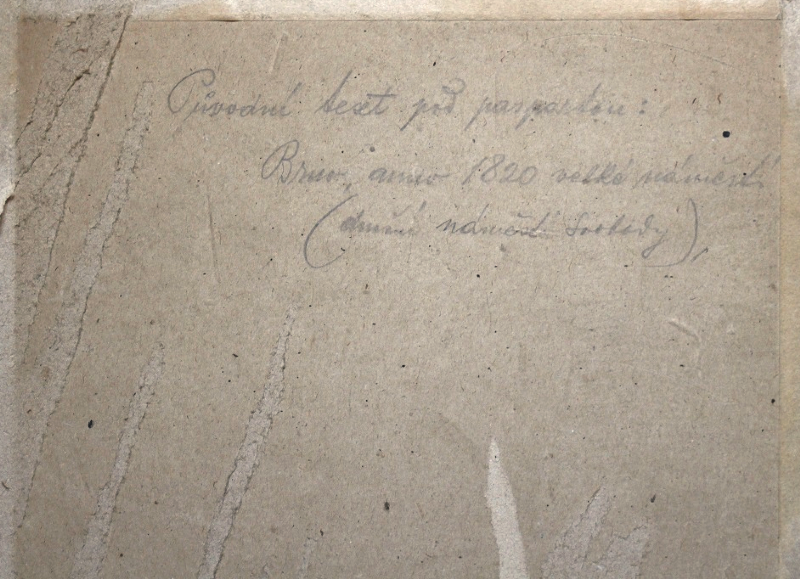 Původní text pod paspartou:
Brno, anno 1820 velké náměstí
(dnešní náměstí Svobody),